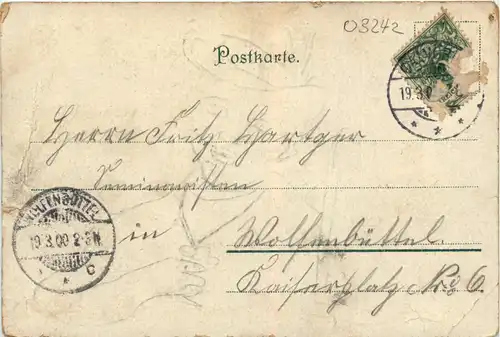 03242
Postkarte.
19.3.00
Herrn Fritz Hartger
Seminaristen
WOLFENBÜTTEL
19.3.00 2-3N
* * C
in Wolfenbüttel.
Kaiserplatz No 6